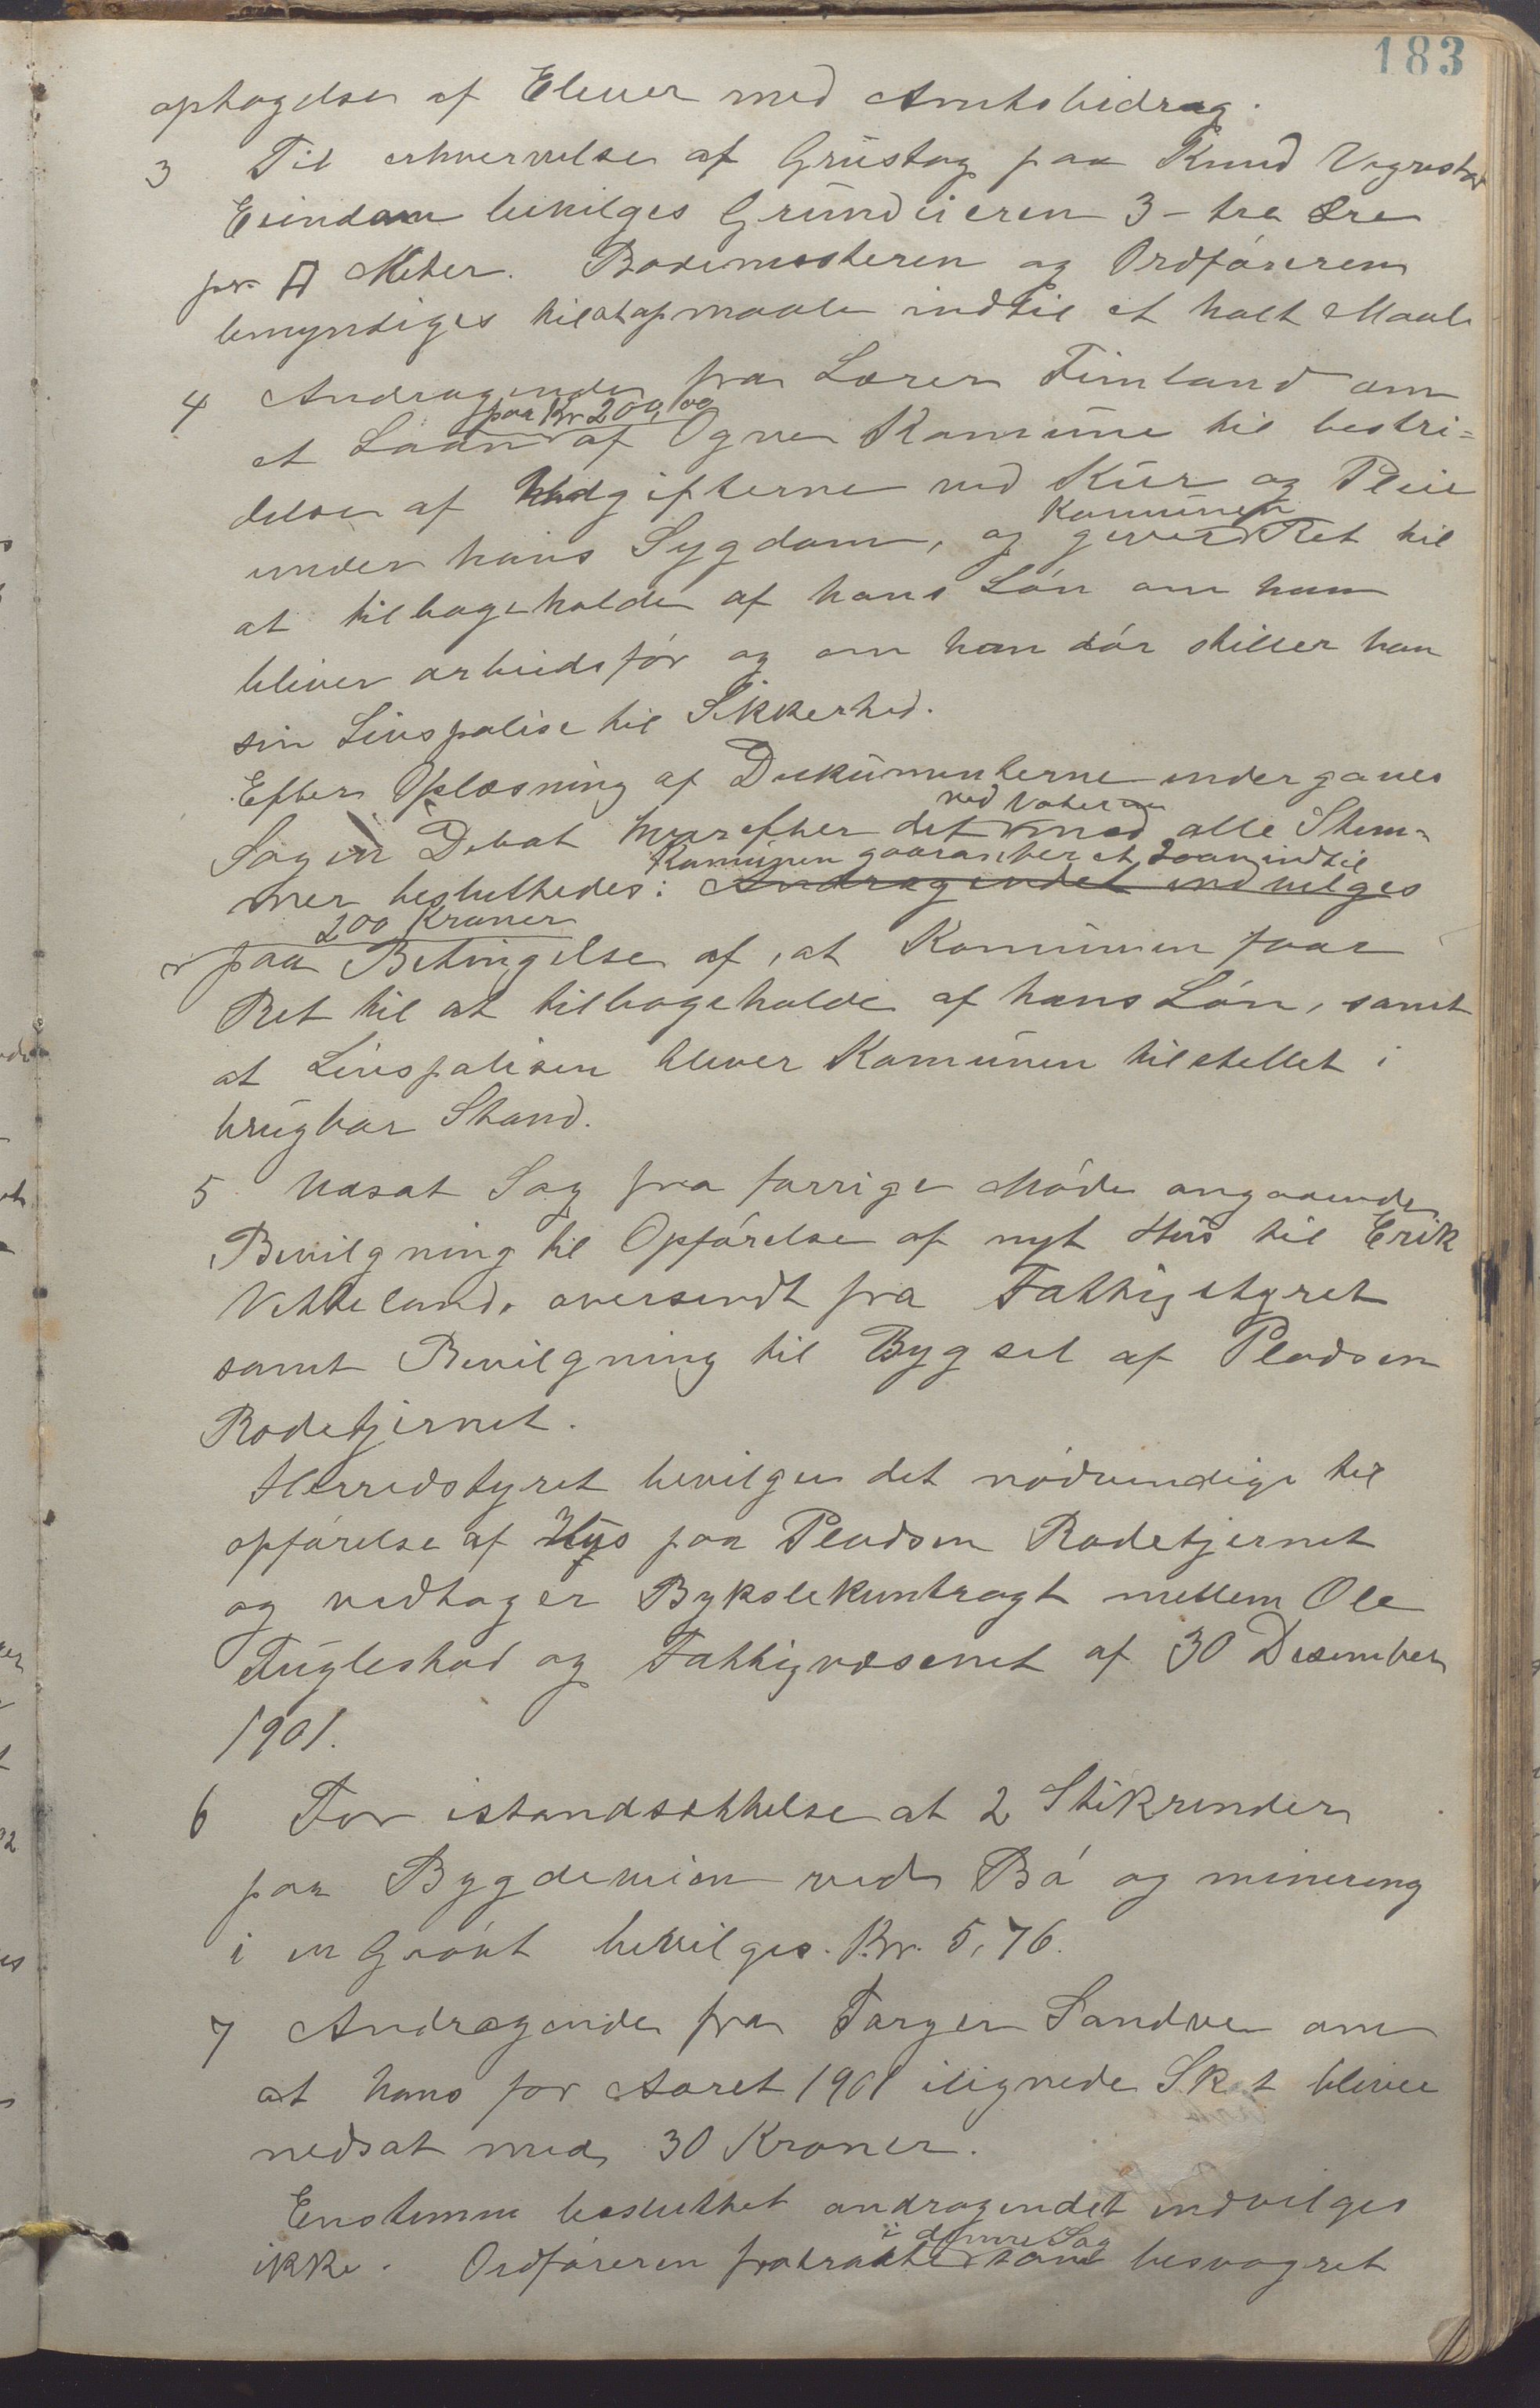 183
optagelse af Elever med Amtsbidrag.
3 Til erhvervelse af Grustag paa Knud Vegrestad
Eiendom bevilges Grundeieren 3 - tre Øre
pr □ Meter. Rodemesteren og Ordføreren
bemyndiges til at opmaale indtil et halt Maal
4 Andragende fra Lærer Fimland om
et Laan paa Kr 200,00 af Ogne Komune til bestri=
delse af Udgifterne ved Kur og Pleie
under hans Sygdom, og giver Komunen Ret til
at tilbageholde af hans Løn om han
bliver arbeidsfør og om han dør stiller han
sin Livspolise til Sikkerhed.
Efter Oplæsning af Dokumenterne undergaves
Sagen Debat hvorefter det ved Votering med alle Stem-
mer besluttedes: Andragendet indvilges Komunen gaaranterer et Laan indtil
200 Kroner
paa Betingelse af, at Komunen faar
Ret til at tilbageholde af hans Løn, samt
at Livspolisen bliver Komunen tilstellet i
brugbar Stand.
5 Udsat Sag fra forrige Møde angaaende
Bevilgning til Opførelse af nyt Hus til Erik
Vetteland, oversendt fra Fattigstyret
samt Bevilgning til Bygsel af Pladsen
Rodetjernet.
Herredstyret bevilger det nødvendige til
opførelse af Hus paa Pladsen Rodetjernet
og vedtager Bykslekontragt mellem Ole
Fuglestad og Fattigvæsenet af 30 Desember
1901.
6 For istandsættelse at 2 Stikrender
paa Bygdeveien ved Bø og minering
i en Grøvt bevilges. Kr. 5,76.
7 Andragende fra Torger Sandve om
at hans for Aaret 1901 ilignede Skat bliver
nedsat med 30 Kroner.
Enstemmi besluttet andragendet indvilges
ikke. Ordføreren fratraadte i denne Sag som besvogret